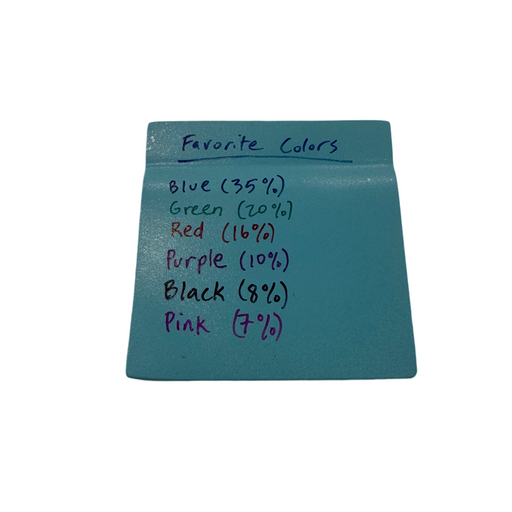 Favorite Colors
Blue (35%)
Green (20%)
Red (16%)
Purple (10%)
Black (8%)
Pink (7%)